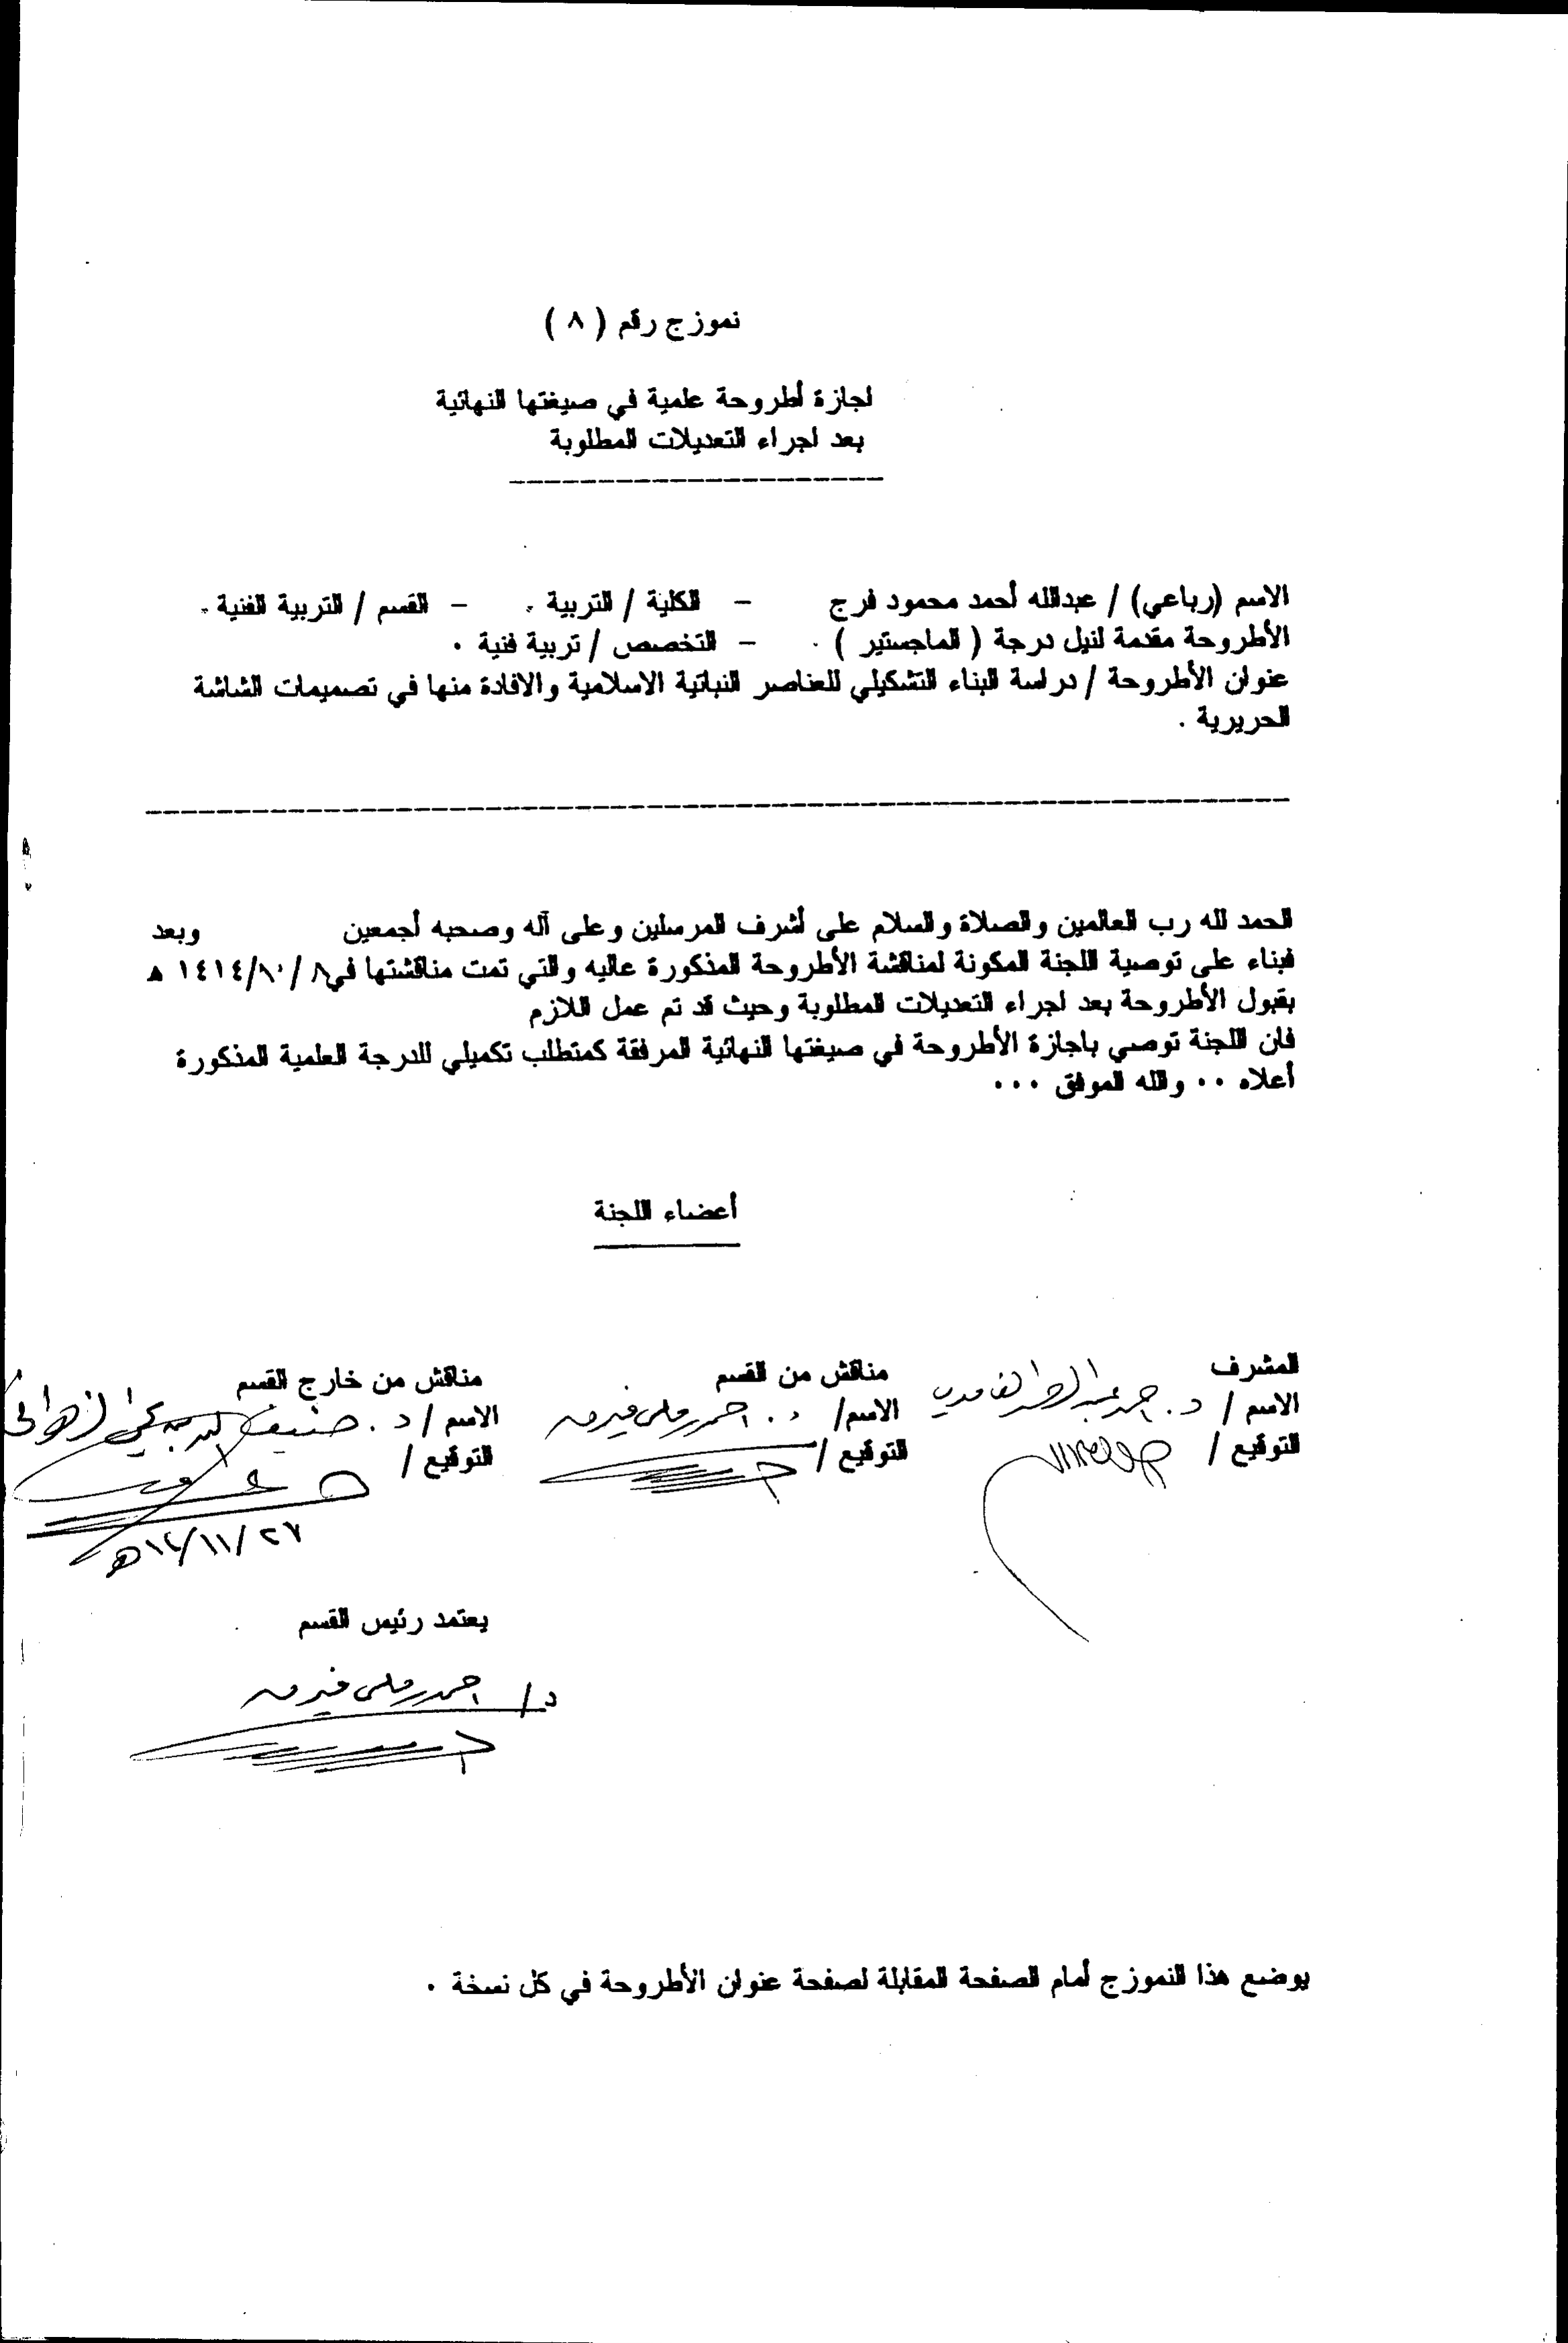 نموزج رقم ( ٨ )
اجازة أطروحة علمية في صيغتها النهائية
بعد اجراء التعديلات المطلوبة
الاسم (رباعي) / عبدالله أحمد محمود فرج – الكلية / التربية . – القسم / التربية الفنية .
الأطروحة مقدمة لنيل درجة ( الماجستير ) . – التخصص / تربية فنية .
عنوان الأطروحة / دراسة البناء التشكيلي للعناصر النباتية الاسلامية والافادة منها في تصميمات الشاشة
الحريرية .
الحمد لله رب العالمين والصلاة والسلام على أشرف المرسلين وعلى آله وصحبه أجمعين وبعد
فبناء على توصية اللجنة المكونة لمناقشة الأطروحة المذكورة عاليه والتي تمت مناقشتها في ٨ / ١٠/ ١٤١٤ هـ
بقبول الأطروحة بعد اجراء التعديلات المطلوبة وحيث قد تم عمل اللازم
فان اللجنة توصي باجازة الأطروحة في صيغتها النهائية المرفقة كمتطلب تكميلي للدرجة العلمية المذكورة
أعلاه .. والله الموفق ...
أعضاء اللجنة
المشرف مناقش من القسم مناقش من خارج القسم
الاسم / د. عبد الرحمن الغامدي الاسم/ د. احمد فيرق الاسم / د.
التوقيع / التوقيع / التوقيع /
٢٧ / ١١ / ١٤ هـ
يعتمد رئيس القسم
د/ احمد
يوضع هذا النموزج أمام الصفحة المقابلة لصفحة عنوان الأطروحة في كل نسخة .